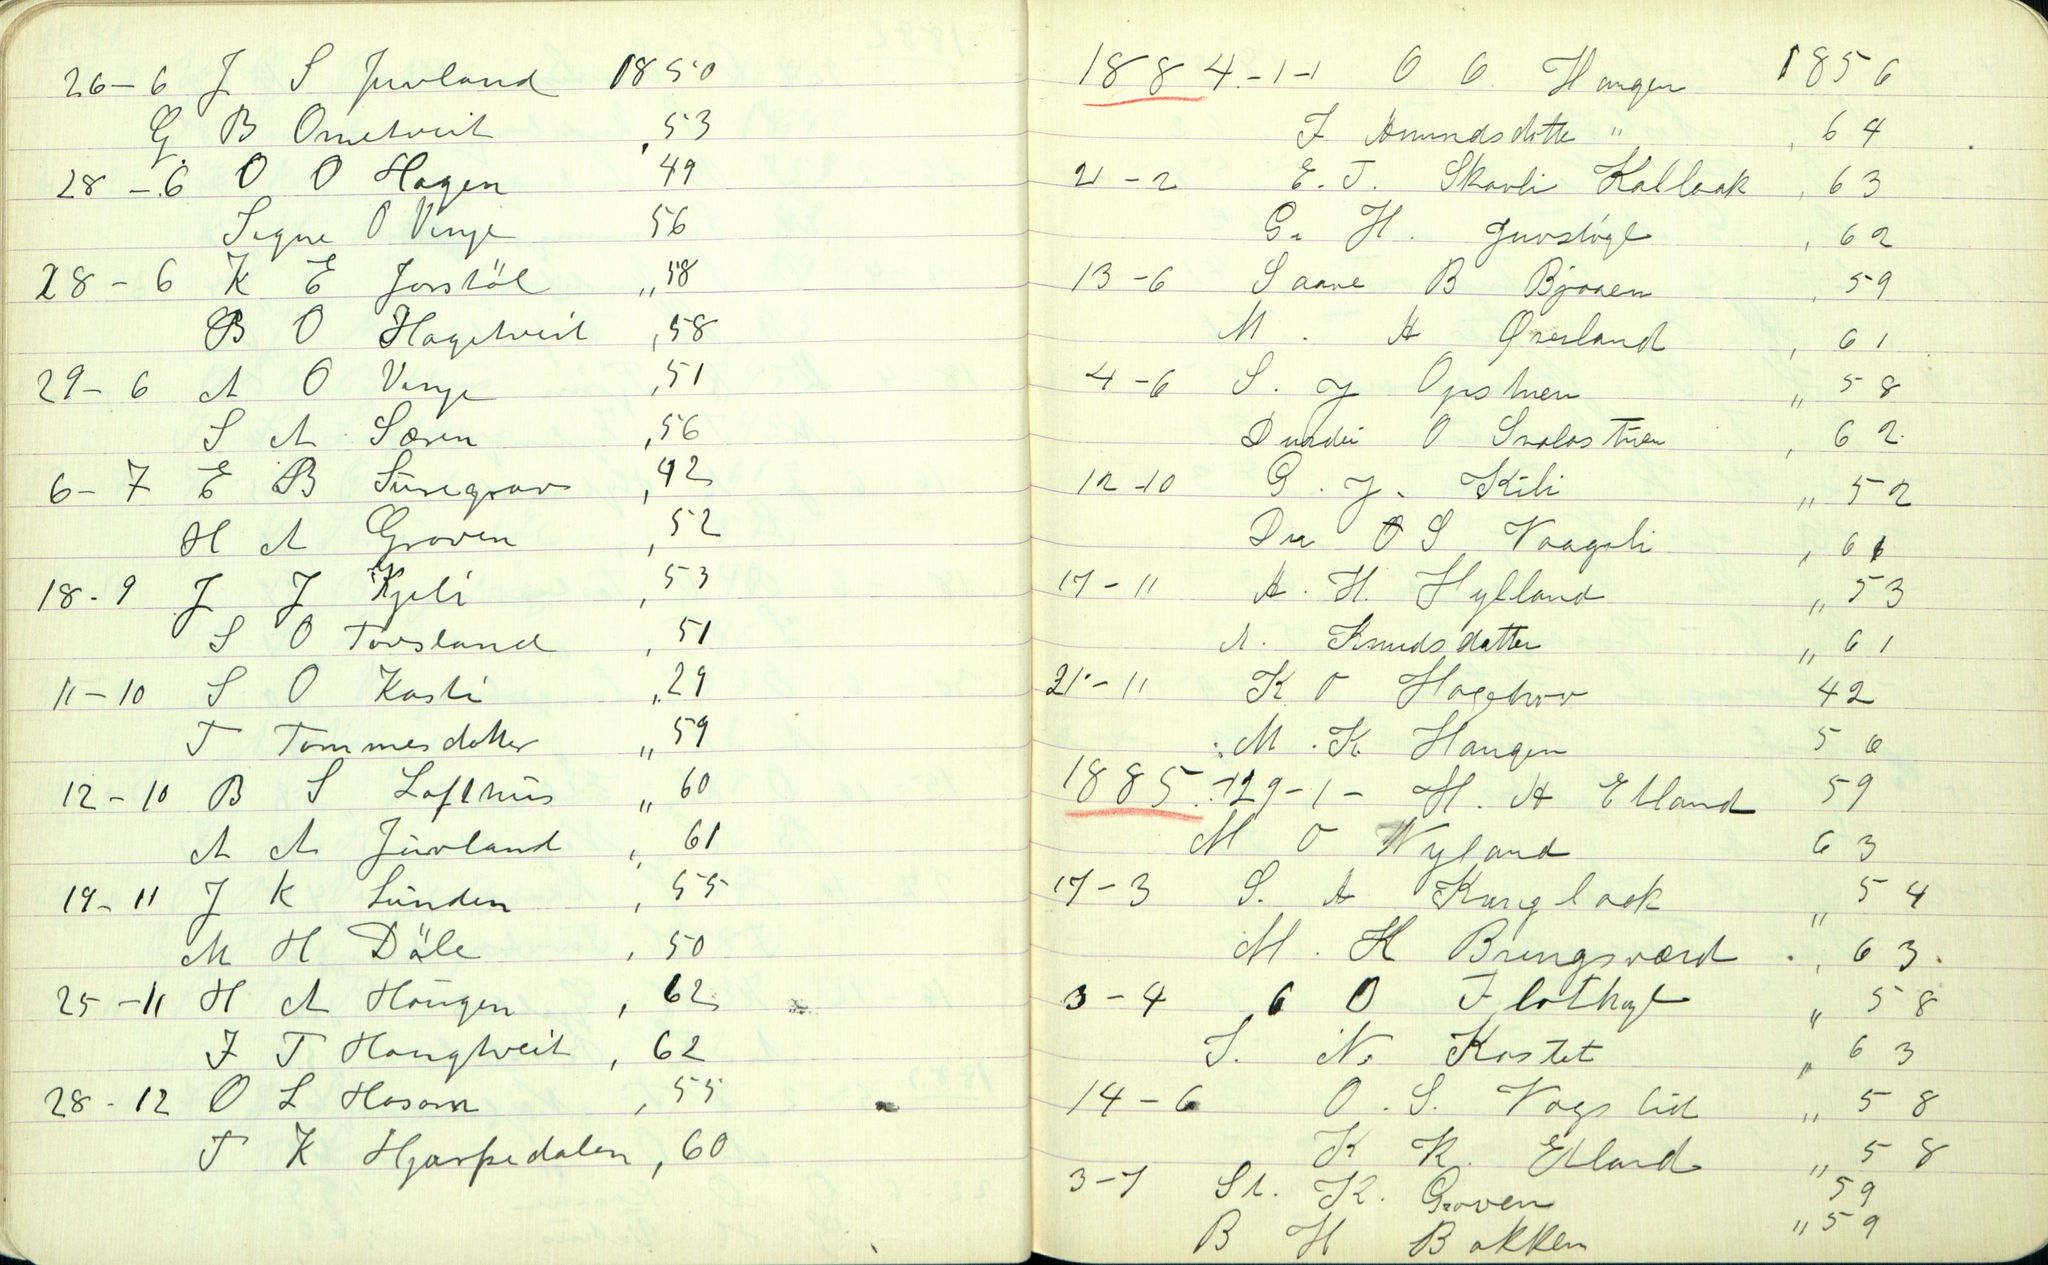 26-6 J S Juvland 1850
G. B Ometveit ,53
28-6 O O Hagen 49
Signe O Vinje 56
28-6 K E Jorstöl ,,58
B O Hagetveit ,58
29-6 A O Vinje ,51
S A Søren ,56
6-7 E B Suregrav ,42
H A Groven ,52
18-9 J J Kjeli ,53
S O Tovsland ,51
11-10 S O Kasli ,,29
T Tommesdotter ,,59
12-10 B S Lofthus ,,60
A A Juvland ,, 61
19-11 J K Lunden , 55
M H Döle , 50
25-11 H A Hougen , 62
J T Hougtveit , 62
28-12 O L Hosom , 55
T K Hjarpedalen , 60
1884.-1-1 O O Haugen 1856
J Amundsdotte " , 64
21-2 E. J. Skavli Kallaak , 63
G. H. Juvstøyl , 62
13-6 Saave B Bjaaen , 59
M. A Øresland , 61
4-6 S. J Opstuen ,, 58
O , 62
12-10 G. J. Kili ,, 52
O S Vaagsli , 61
17-11 A. H. Hylland ,, 53
A. Knudsdatter ,, 61
21-11 K O 42
M. K. Haugen 50
1885.-129-1- H. A Etland 59
M O Nyland 63
17-3 S. A Kunglaak ,, 54
M. K Bringsværd , 63.
3-4 O Flothyl ,, 58
S. N. Kostet ,, 63
14-6 O. S. Vagslid ,, 58
K K. Etland ,, 58
3-7 St. K. Groven 59
B H Bakken ,, 59